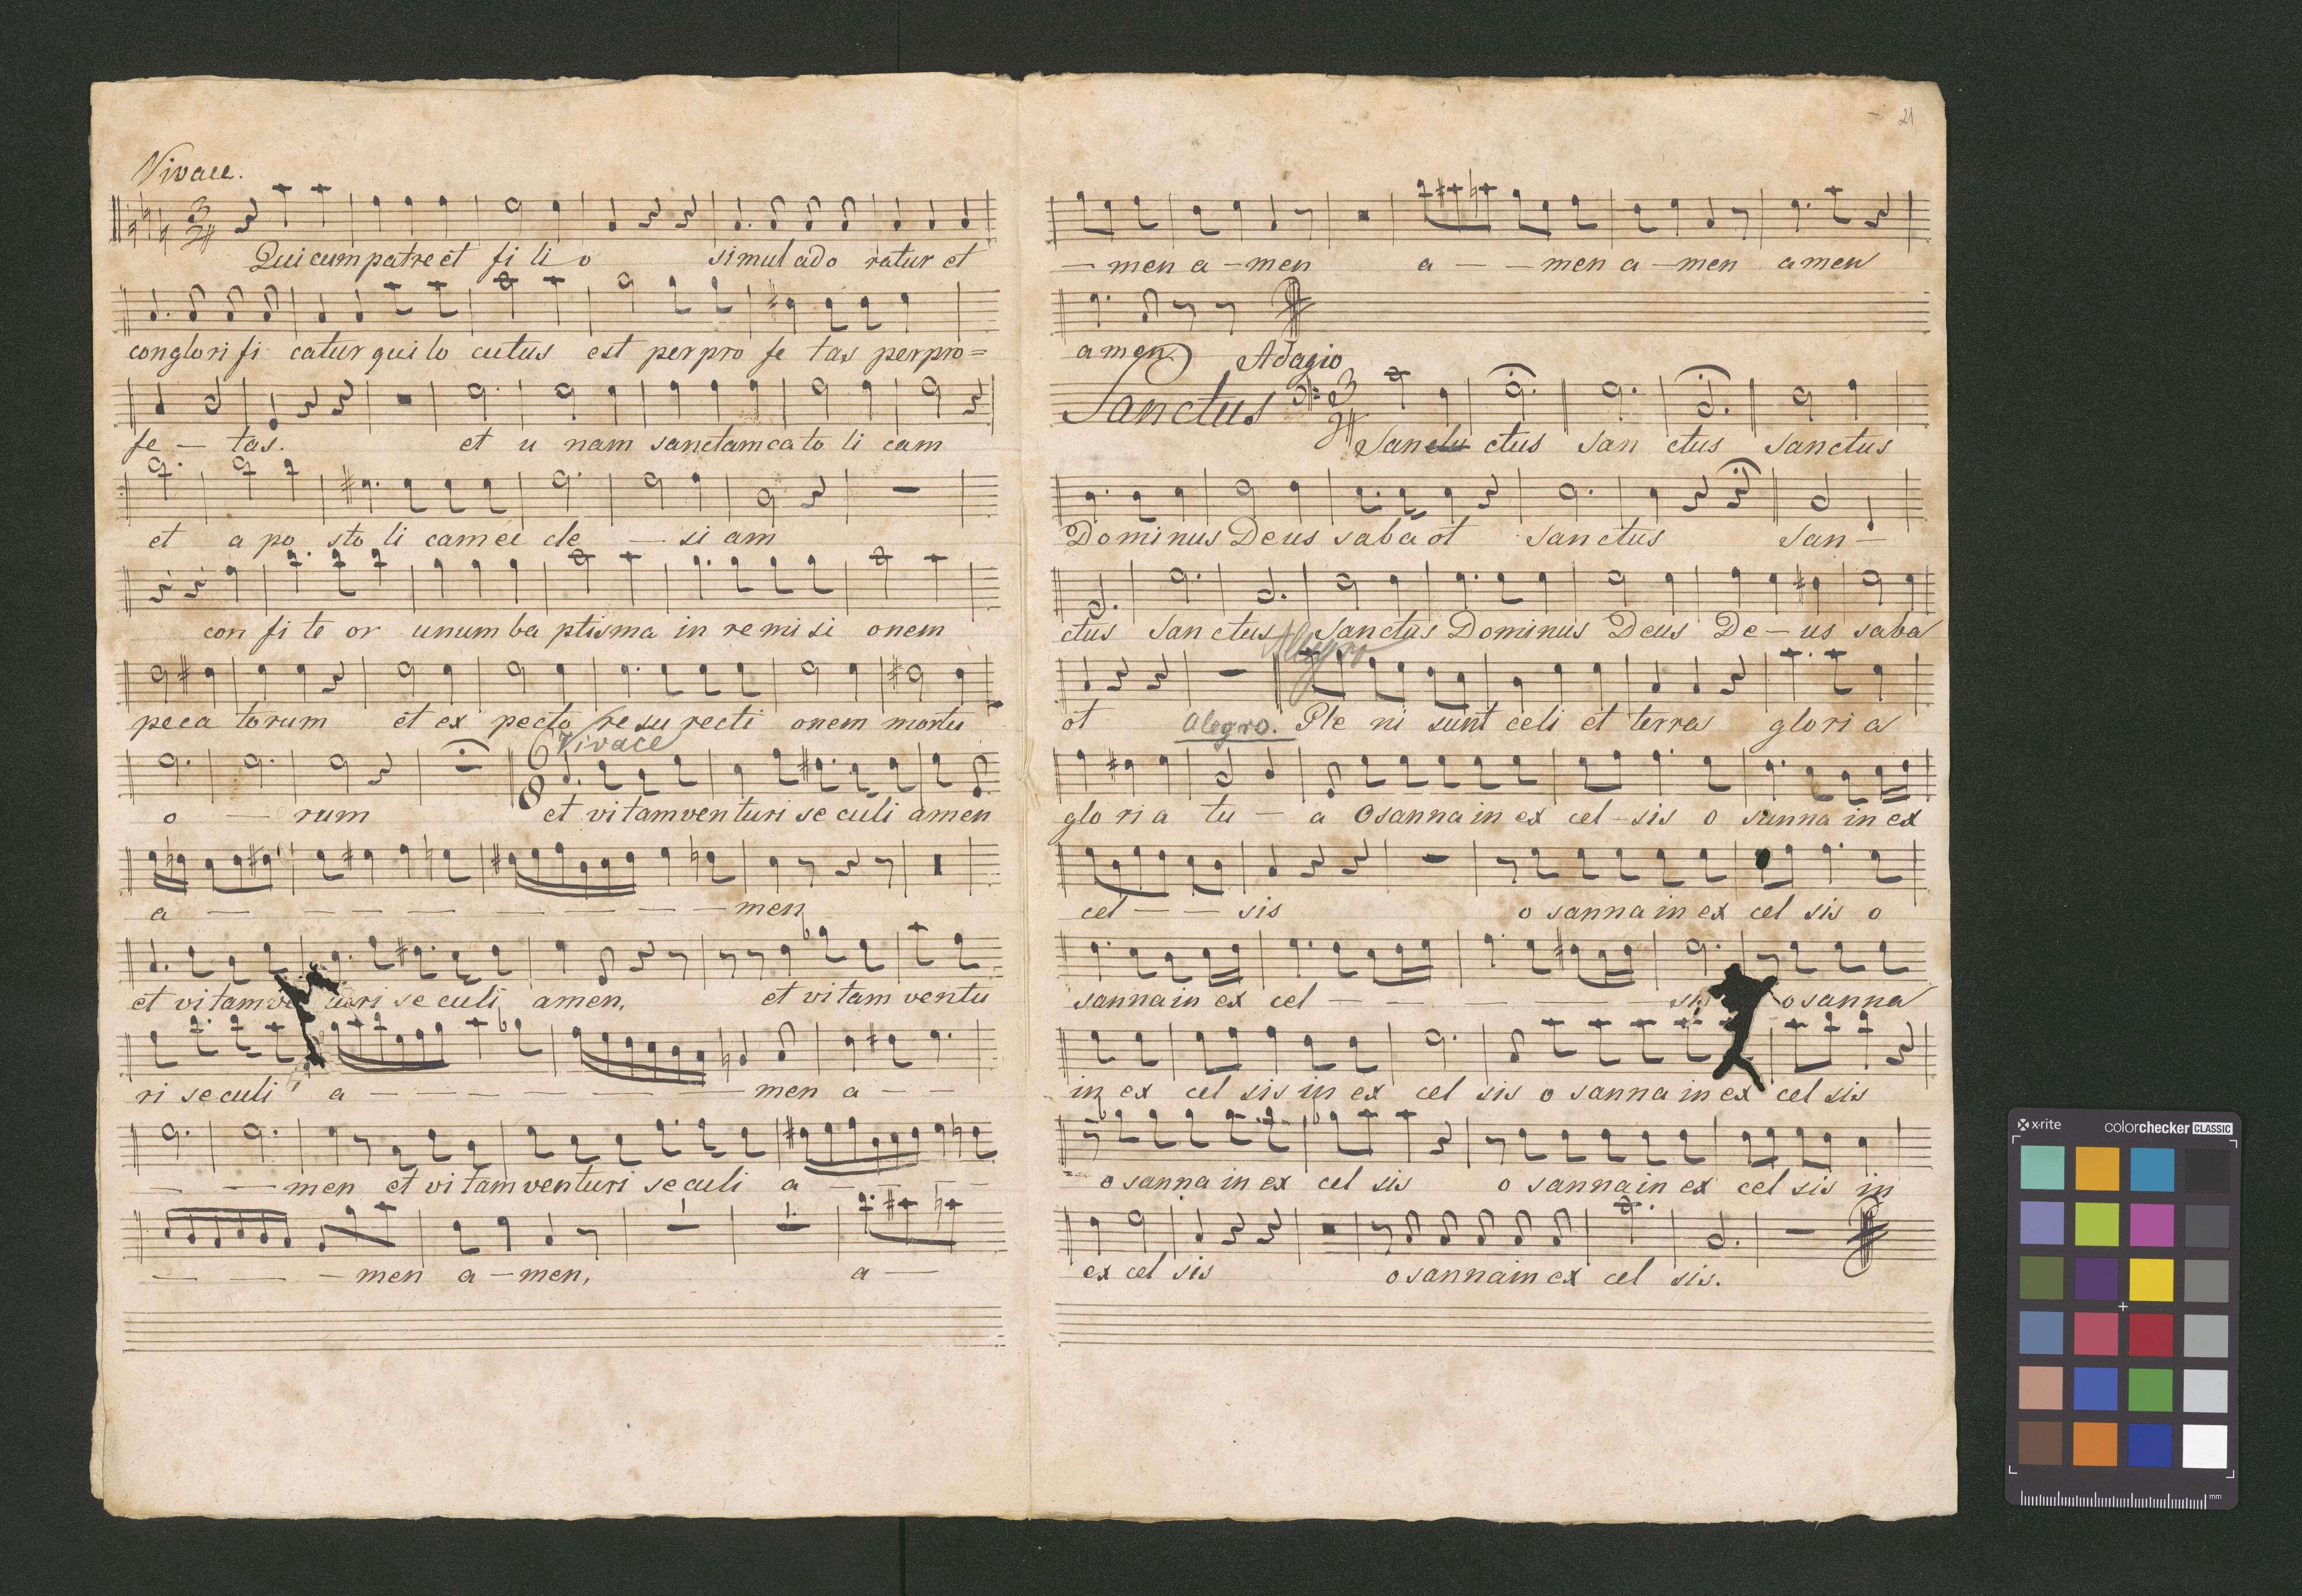 Vivace.
Qui cum patre et fi li o simul ado ratur et
conglori fi catur qui lo cutus est per pro fe tas per pro=
fe - tas. et u nam sanctam ca to li cam
et a po sto li cam ec cle - si am
con fi te or unum ba ptisma in re mi si onem
peca torum et ex pecto re su recti onem mortu
Vivace
o - rum et vi tam ven turi se culi amen
a - - - - - - - men
et vi tam ve turi se culi amen, et vi tam ventu
ri se culi a - - - - - - men a -
- - men et vi tam venturi se culi a - - -
- - - men a - men, a -
21
- men a - men a - - men a - men amen
amen
Adagio
Sanctus 3 Sanctu ctus San ctus Sanctus
Dominus Deus sabaot Sanctus San -
ctus Sanctus Sanctus Dominus Deus De - us saba
Allegro
ot Alegro. Ple ni sunt celi et terra glori a
glo ri a tu - a Osanna in ex cel - sis o sanna in ex
cel - - sis o sanna in ex cel sis o
sanna in ex cel - - - - - sis o sanna
in ex cel sis in ex cel sis o sanna in ex cel sis
o sanna in ex cel sis o sanna in ex cel sis in
ex cel sis o sanna in ex cel sis.
x-rite colorchecker CLASSIC
mm